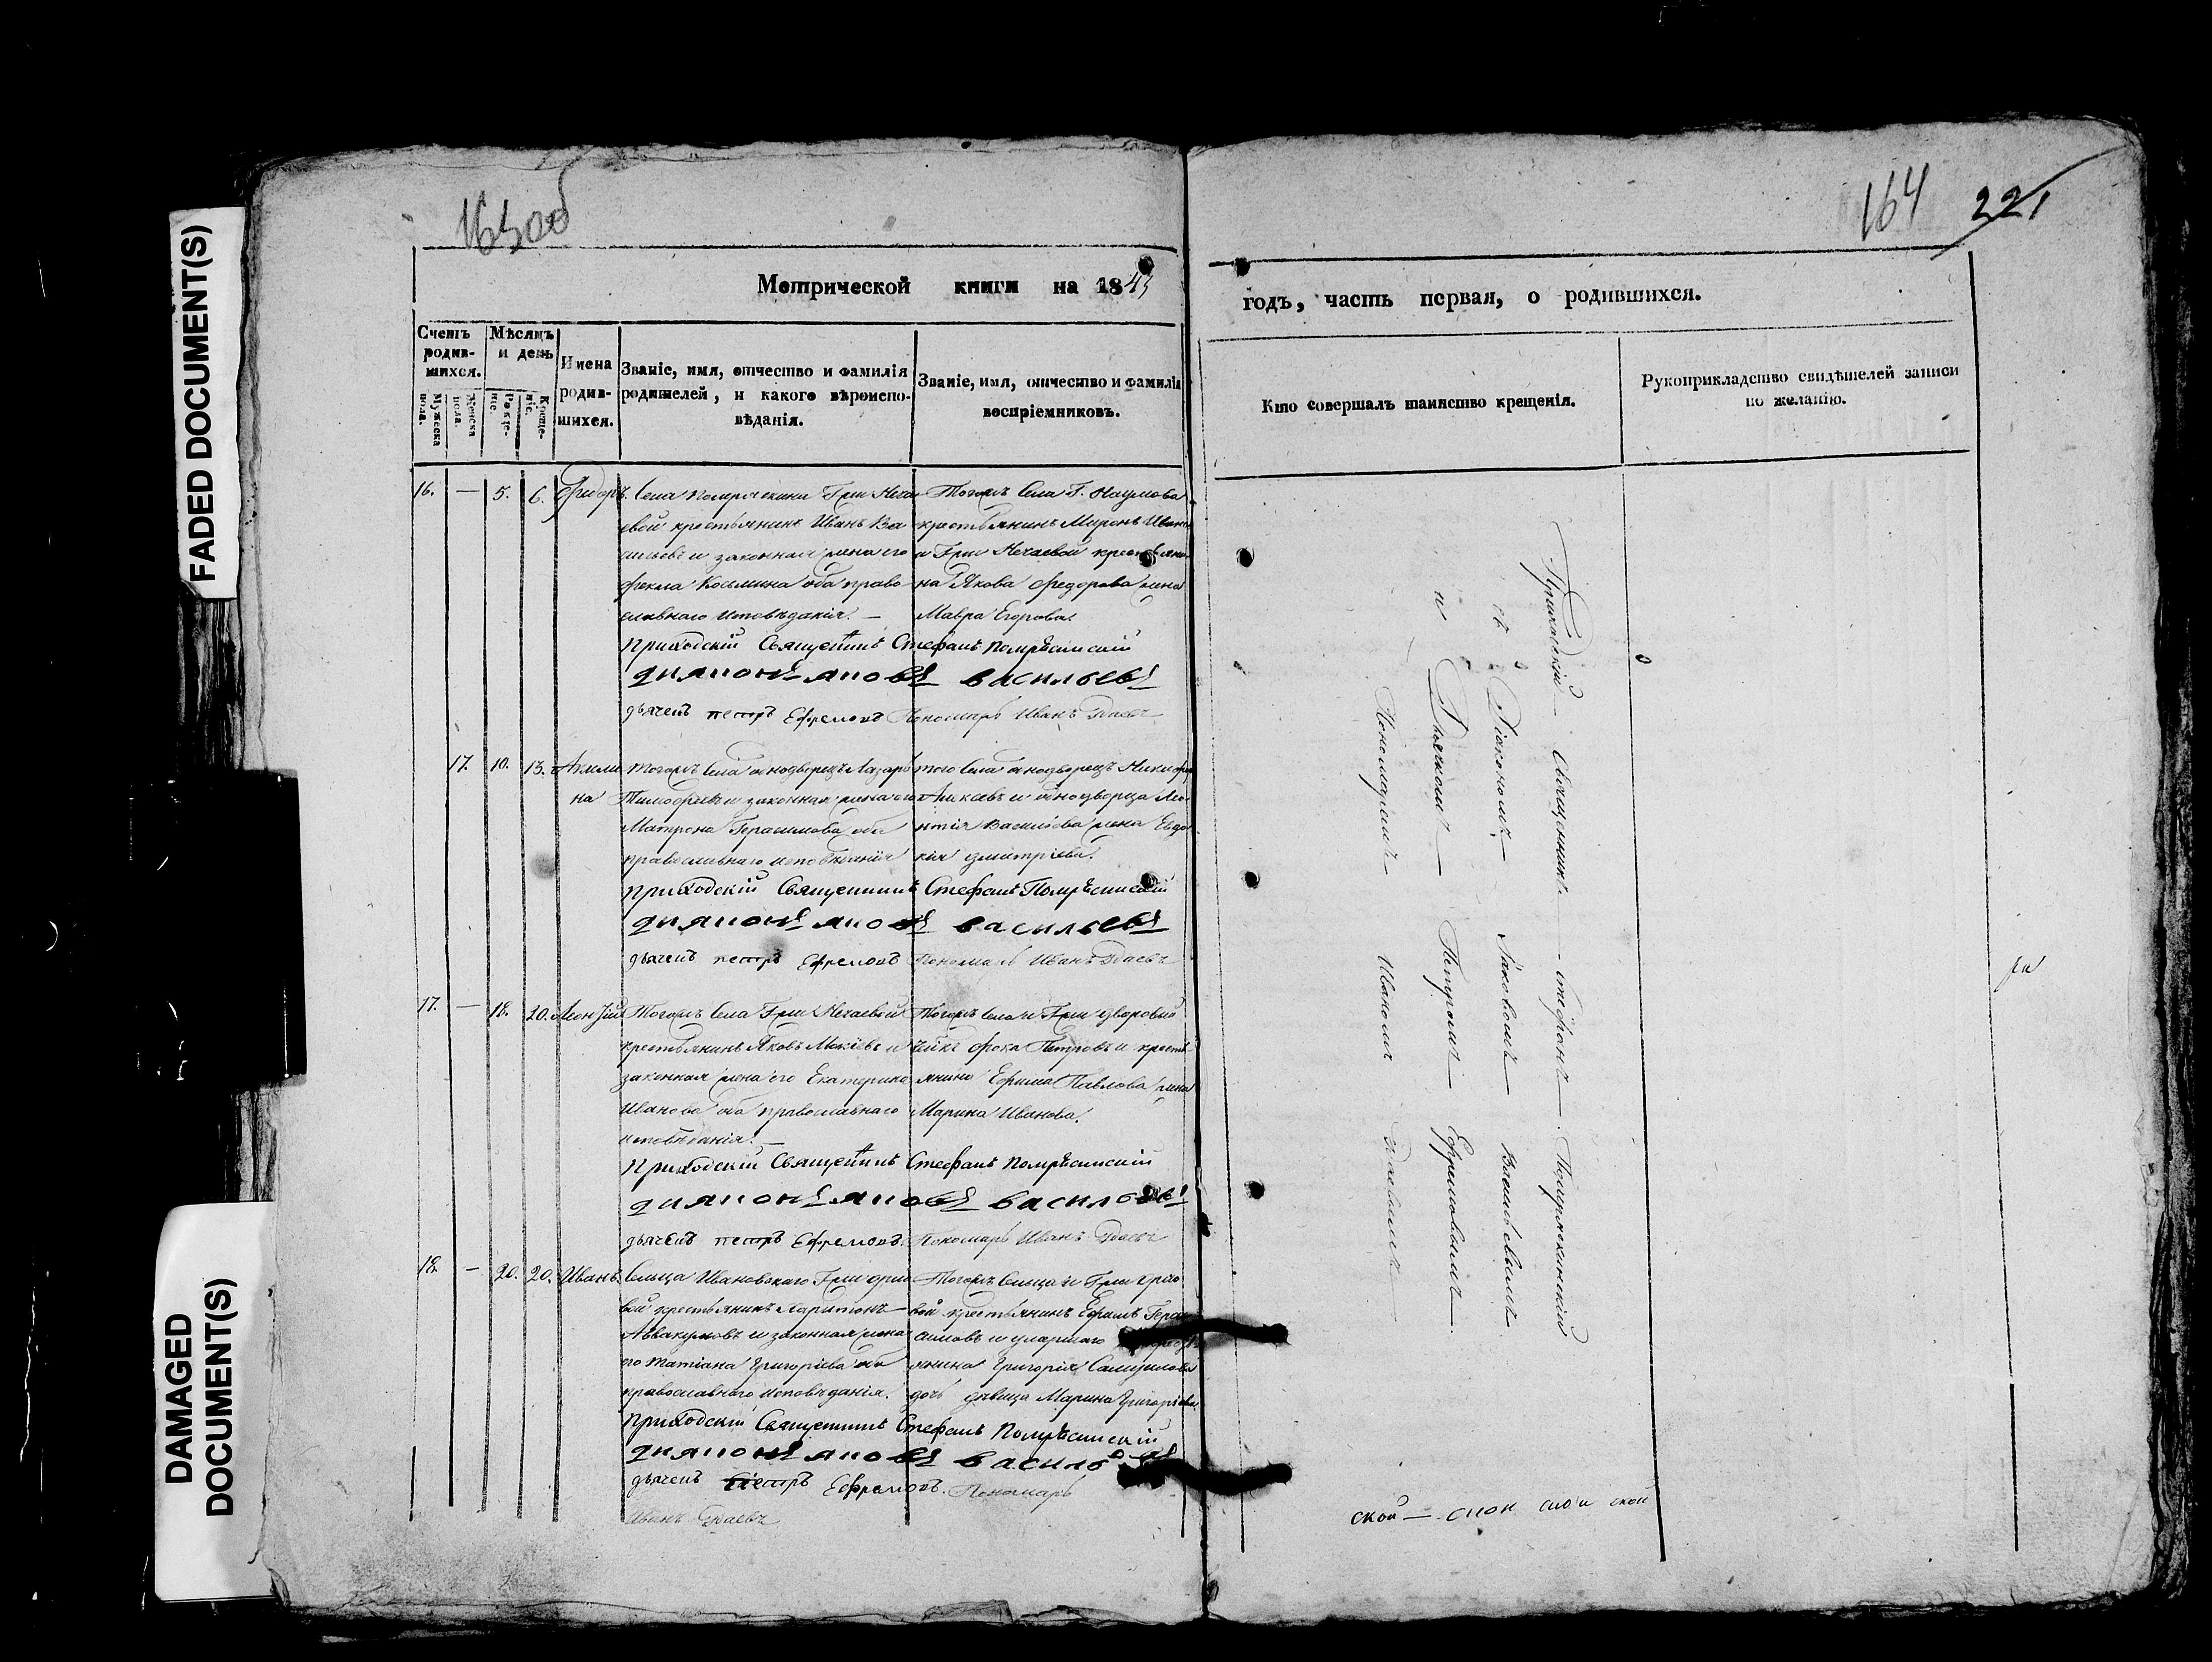 FADED DOCUMENT(S)
DAMAGED DOCUMENT(S)
163об
164 221
Метрической книги на 1843
годъ, часть первая, о родившихся.
Счетъ родившихся.
Мѣсяцъ и день
Имена родившихся.
Званіе, имя, отчество и фамилія родителей, и какого вѣроисповѣданія.
Званіе, имя, отчество и фамилія воспріемниковъ.
Кто совершалъ таинство крещенія.
Рукоприкладство свидѣтелей записи по желанію.
Мужеска пола.
Женска пола.
Рожденіе.
Крещеніе.
16. — 5. 6. Фидоръ
Села Гжи Неча
евой крестьянинъ Иванъ Ва
сильевъ и законная жена его
Фекла Косьмина оба право
славнаго исповѣданія. —
Тогожъ Села Г. Наумова
крестьянинъ Миронъ Ивано
и Гжи Нечаевой крестьяни
на Якова Федорова жена
Мавра Егорова.
приходскій Священникъ Стефанъ
дияконъ яковъ васильевъ
дьячекъ петръ Ефремовъ Пономарь Иванъ
17. 10. 13. Акили
на
Тогожъ Села однодворецъ Лазарь
Тимофеевъ и законная жена его
Матрена Герасимова оба
православнаго исповѣданія
того Села однодворецъ Никифоръ
Алексевъ и однодворца Лео
нтія Васильева жена Евдо
кія Дмитріева.
приходскій Священникъ Стефанъ
дияконъ яковъ васильевъ
дьячекъ петръ Ефремовъ Пономарь Иванъ
17. — 18. 20. Леонтій
Тогожъ Села Гжи Нечаевой
крестьянинъ Яковъ Мокіевъ и
законная жена его Екатерина
Иванова оба православнаго
исповѣданія. —
Тогожъ Села и Гжи дворовый
Фока Петровъ и кресть
янина Ефима Павлова жена
Марина Иванова.
приходскій Священникъ Стефанъ
дияконъ яковъ васильевъ
дьячекъ петръ Ефремовъ. Пономарь Иванъ
18. — 20. 20. Иванъ.
Сельца Ивановскаго Гжи
вой крестьянинъ Харитонъ
Аввакумовъ и законная жена
его Татіана Григоріева оба
православнаго исповѣданія.
Тогожъ Сельца и Гжи
вой крестьянинъ Ефимъ Гера
симовъ и умершаго
Григорія Самуилова
дочь дѣвица Марина Григоріева.
приходскій Священникъ Стефанъ
дияконъ яковъ васильевъ
дьячекъ петръ Ефремовъ. Пономарь
Иванъ
Приходскій — Священникъ — Стефанъ —
съ Діакономъ — Яковомъ — Васильевымъ
и Дьячкомъ — Петромъ — Ефремовымъ —
Пономаремъ — Иваномъ